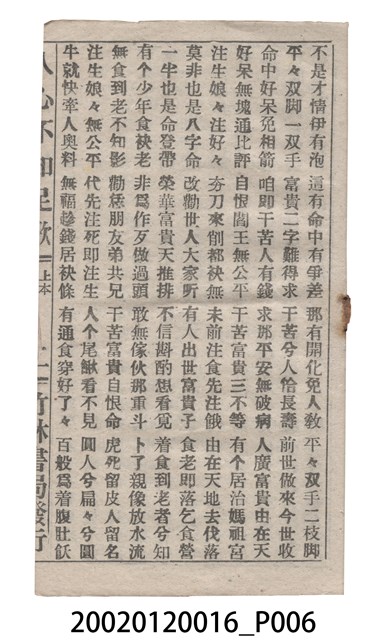 不是才情伊有泡 這有命中有爭差 那有開化免人教 平々双手二枝脚
平々双脚一双手 富貴二字難得求 干苦兮人恰長壽 前世做來今世收
命中好呆免相箭 咱即干苦人有錢 求那平安無破病 人廣富貴由在天
好呆無塊通比評 自恨閻王無公平 干苦富貴三不等 有个居治媽祖宮
注生娘々注好々 夯刀來削都袂無 未前注食先注餓 由在天地去伐落
莫非也是八字命 改勸世人大家聽 有人出世富貴子 食老即落乞食營
一半也是命登帶 榮華富貴天推排 不信斟酌想看覓 着食到老者兮知
有个少年食袂老 非爲作歹做過頭 敢無傢伙那重斗 卜了親像放水流
無食到老不知影 勸恁朋友弟共兄 干苦富貴自恨命 虎死留皮人留名
注生娘々無公平 代先注死即注生 人个尾䠡看不見 圓人兮扁々兮圓
牛就快牽人奧料 無福趁錢居袂條 有通食穿好了々 百般爲着腹肚飫
人心不知足歌 上本 二 竹林書局發行
20020120016_P006